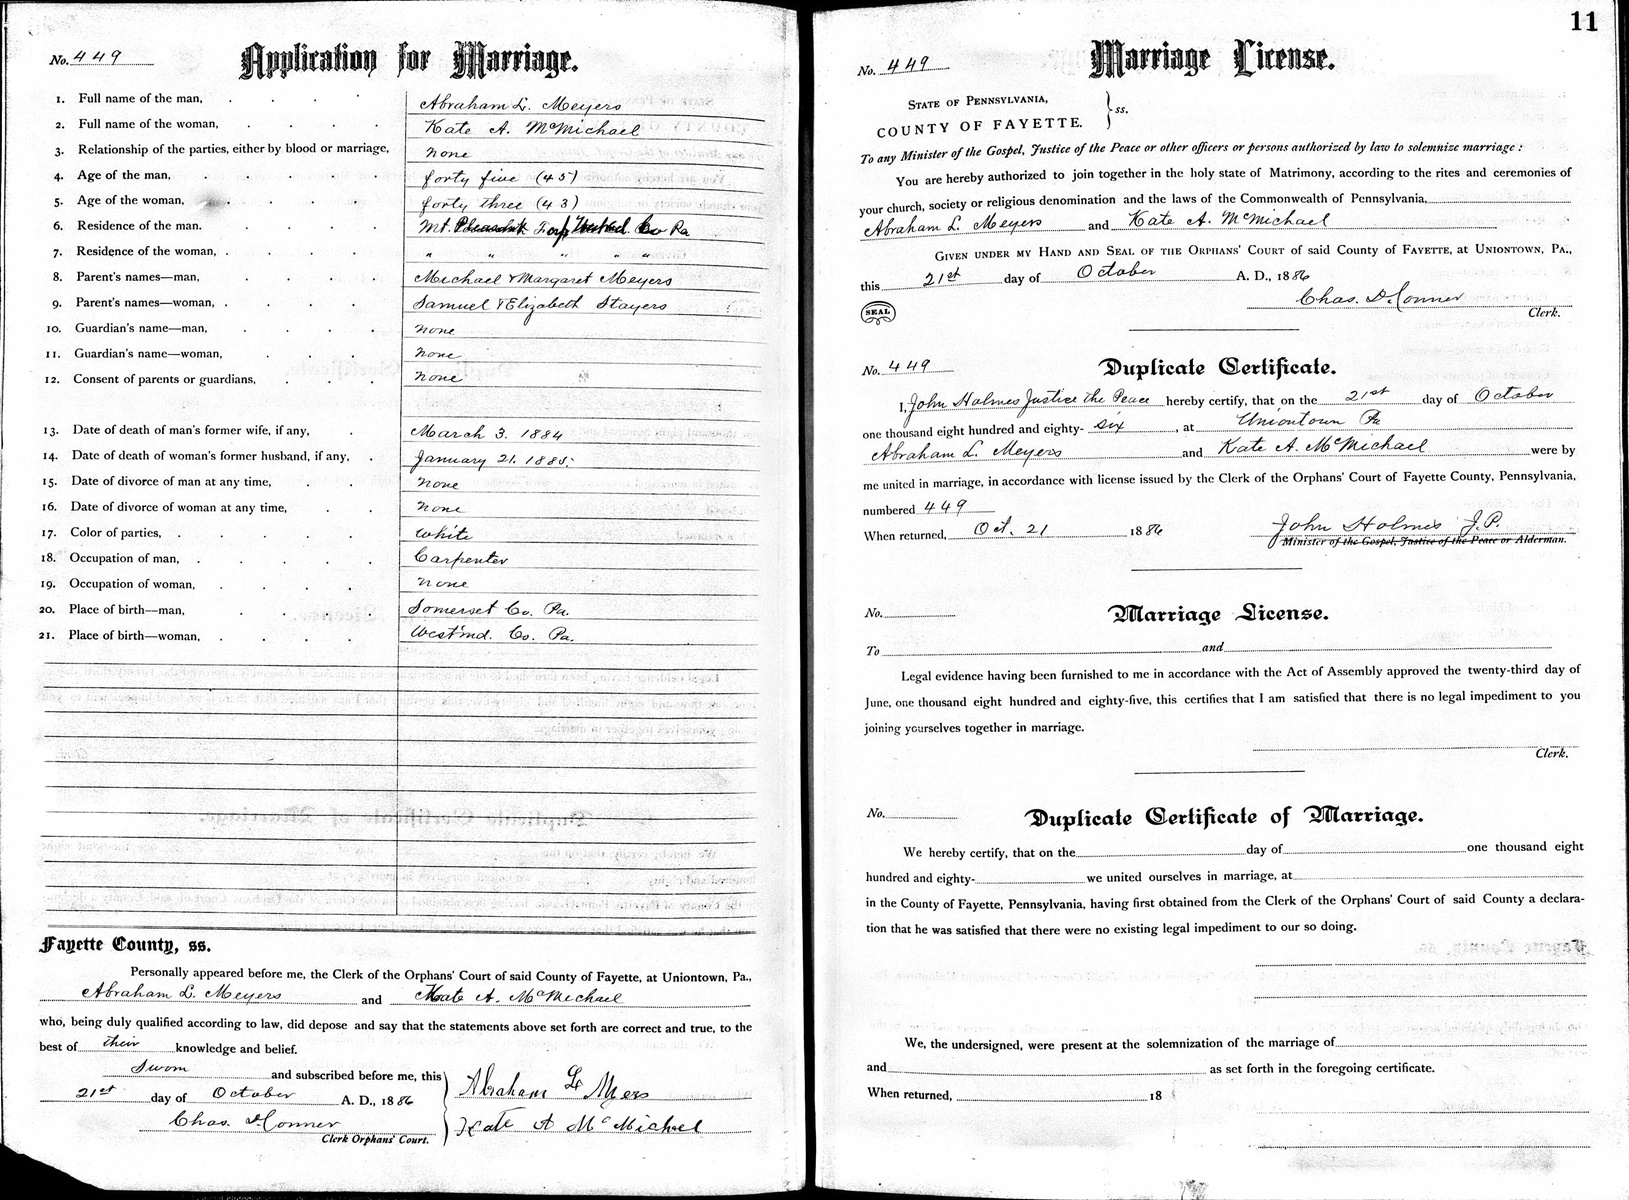 No. 449 Application for Marriage.
1. Full name of the man, Abraham L. Meyers
2. Full name of the woman, Kate A. McMichael
3. Relationship of the parties, either by blood or marriage, none
4. Age of the man, forty five (45)
5. Age of the woman, forty three (43)
6. Residence of the man. Mt. Pleasant Twp Co Pa
7. Residence of the woman, " " " " "
8. Parent's names—man, Michael & Margaret Meyers
9. Parent's names—woman, Samuel & Elizabeth Stayers
10. Guardian's name—man, none
11. Guardian's name—woman, none
12. Consent of parents or guardians, none
13. Date of death of man's former wife, if any, March 3. 1884
14. Date of death of woman's former husband, if any, January 21. 1885.
15. Date of divorce of man at any time, none
16. Date of divorce of woman at any time, none
17. Color of parties, white
18. Occupation of man, Carpenter
19. Occupation of woman, none
20. Place of birth—man, Somerset Co. Pa.
21. Place of birth—woman, West'md. Co. Pa.
Fayette County, ss.
Personally appeared before me, the Clerk of the Orphans' Court of said County of Fayette, at Uniontown, Pa.,
Abraham L. Meyers and Kate A. McMichael
who, being duly qualified according to law, did depose and say that the statements above set forth are correct and true, to the
best of their knowledge and belief.
Sworn and subscribed before me, this
21st day of October A. D., 1886
Chas. D. Conner
Clerk Orphans' Court.
Abraham L Myers
Kate A McMichael
11
No. 449 Marriage License.
State of Pennsylvania,
COUNTY OF FAYETTE. } ss.
To any Minister of the Gospel, Justice of the Peace or other officers or persons authorized by law to solemnize marriage :
You are hereby authorized to join together in the holy state of Matrimony, according to the rites and ceremonies of
your church, society or religious denomination and the laws of the Commonwealth of Pennsylvania,
Abraham L. Meyers and Kate A. McMichael
Given under my Hand and Seal of the Orphans' Court of said County of Fayette, at Uniontown, Pa.,
this 21st day of October A. D., 1886
Chas. D. Conner
SEAL Clerk.
No. 449 Duplicate Certificate.
I, John Holmes Justice the Peace hereby certify, that on the 21st day of October
one thousand eight hundred and eighty- six, at Uniontown Pa
Abraham L. Meyers and Kate A. McMichael were by
me united in marriage, in accordance with license issued by the Clerk of the Orphans' Court of Fayette County, Pennsylvania,
numbered 449
When returned, Oct. 21 1886 John Holmes J.P.
Minister of the Gospel, Justice of the Peace or Alderman.
No. Marriage License.
To and
Legal evidence having been furnished to me in accordance with the Act of Assembly approved the twenty-third day of
June, one thousand eight hundred and eighty-five, this certifies that I am satisfied that there is no legal impediment to you
joining yourselves together in marriage.
Clerk.
No. Duplicate Certificate of Marriage.
We hereby certify, that on the day of one thousand eight
hundred and eighty- we united ourselves in marriage, at
in the County of Fayette, Pennsylvania, having first obtained from the Clerk of the Orphans' Court of said County a declara-
tion that he was satisfied that there were no existing legal impediment to our so doing.
We, the undersigned, were present at the solemnization of the marriage of
and as set forth in the foregoing certificate.
When returned, 18